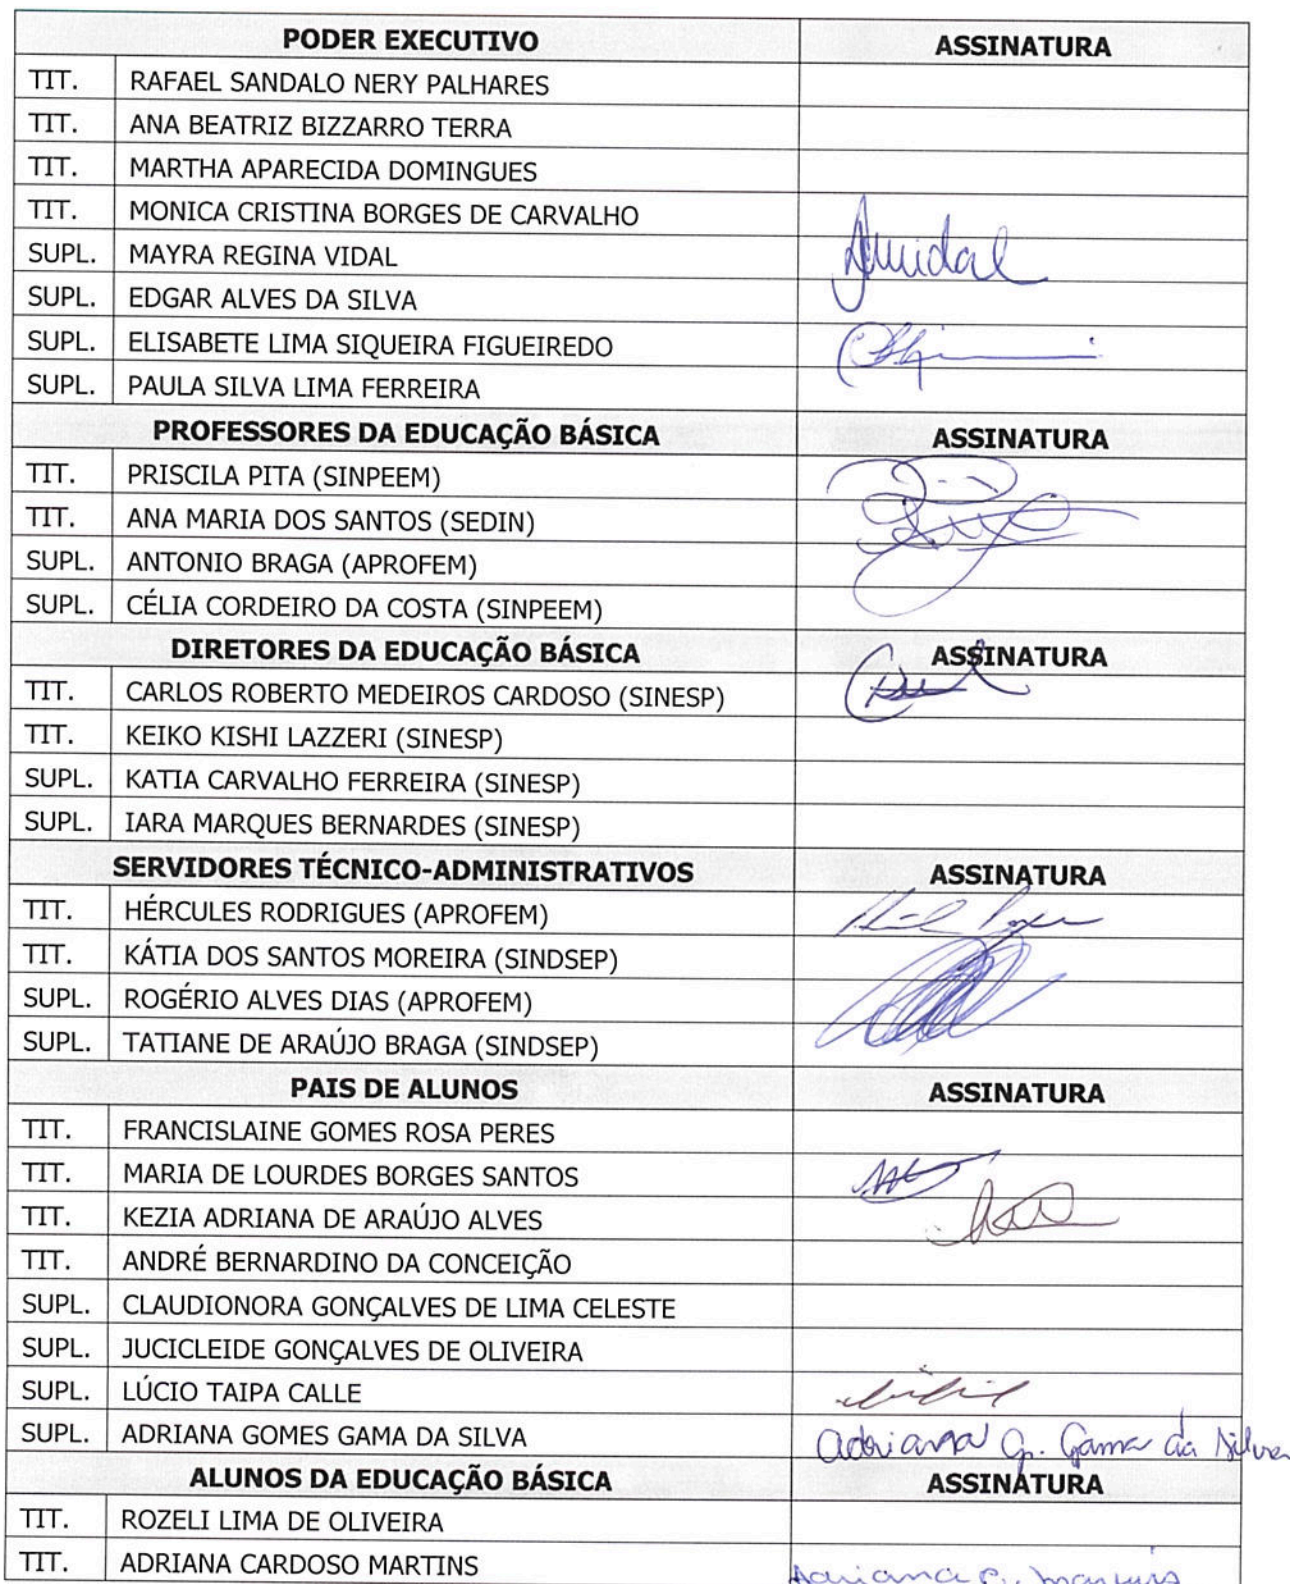 PODER EXECUTIVO ASSINATURA
TIT. RAFAEL SANDALO NERY PALHARES
TIT. ANA BEATRIZ BIZZARRO TERRA
TIT. MARTHA APARECIDA DOMINGUES
TIT. MONICA CRISTINA BORGES DE CARVALHO
SUPL. MAYRA REGINA VIDAL
SUPL. EDGAR ALVES DA SILVA
SUPL. ELISABETE LIMA SIQUEIRA FIGUEIREDO
SUPL. PAULA SILVA LIMA FERREIRA
PROFESSORES DA EDUCAÇÃO BÁSICA ASSINATURA
TIT. PRISCILA PITA (SINPEEM)
TIT. ANA MARIA DOS SANTOS (SEDIN)
SUPL. ANTONIO BRAGA (APROFEM)
SUPL. CÉLIA CORDEIRO DA COSTA (SINPEEM)
DIRETORES DA EDUCAÇÃO BÁSICA ASSINATURA
TIT. CARLOS ROBERTO MEDEIROS CARDOSO (SINESP)
TIT. KEIKO KISHI LAZZERI (SINESP)
SUPL. KATIA CARVALHO FERREIRA (SINESP)
SUPL. IARA MARQUES BERNARDES (SINESP)
SERVIDORES TÉCNICO-ADMINISTRATIVOS ASSINATURA
TIT. HÉRCULES RODRIGUES (APROFEM)
TIT. KÁTIA DOS SANTOS MOREIRA (SINDSEP)
SUPL. ROGÉRIO ALVES DIAS (APROFEM)
SUPL. TATIANE DE ARAÚJO BRAGA (SINDSEP)
PAIS DE ALUNOS ASSINATURA
TIT. FRANCISLAINE GOMES ROSA PERES
TIT. MARIA DE LOURDES BORGES SANTOS
TIT. KEZIA ADRIANA DE ARAÚJO ALVES
TIT. ANDRÉ BERNARDINO DA CONCEIÇÃO
SUPL. CLAUDIONORA GONÇALVES DE LIMA CELESTE
SUPL. JUCICLEIDE GONÇALVES DE OLIVEIRA
SUPL. LÚCIO TAIPA CALLE
SUPL. ADRIANA GOMES GAMA DA SILVA Adriana G. Gama da Silva
ALUNOS DA EDUCAÇÃO BÁSICA ASSINATURA
TIT. ROZELI LIMA DE OLIVEIRA
TIT. ADRIANA CARDOSO MARTINS Adriana C. Martins